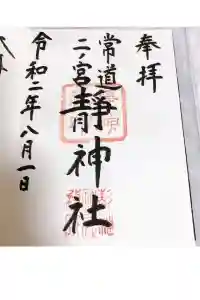 奉拝
常道
二ノ宮
靜神社
令和二年八月一日